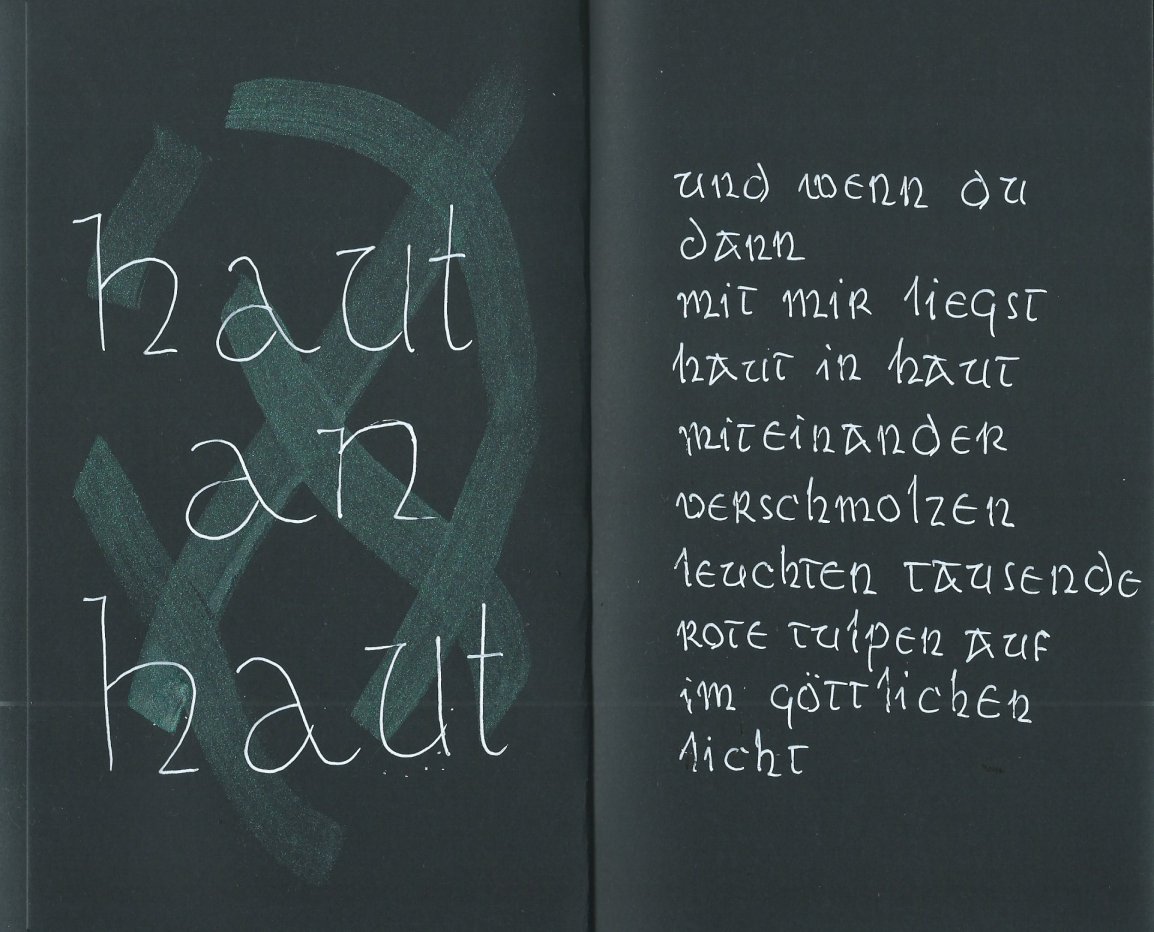 haut
an
haut
und wenn du
dann
mit mir liegst
haut in haut
miteinander
verschmolzen
leuchten tausende
rote tulpen auf
im göttlichen
licht